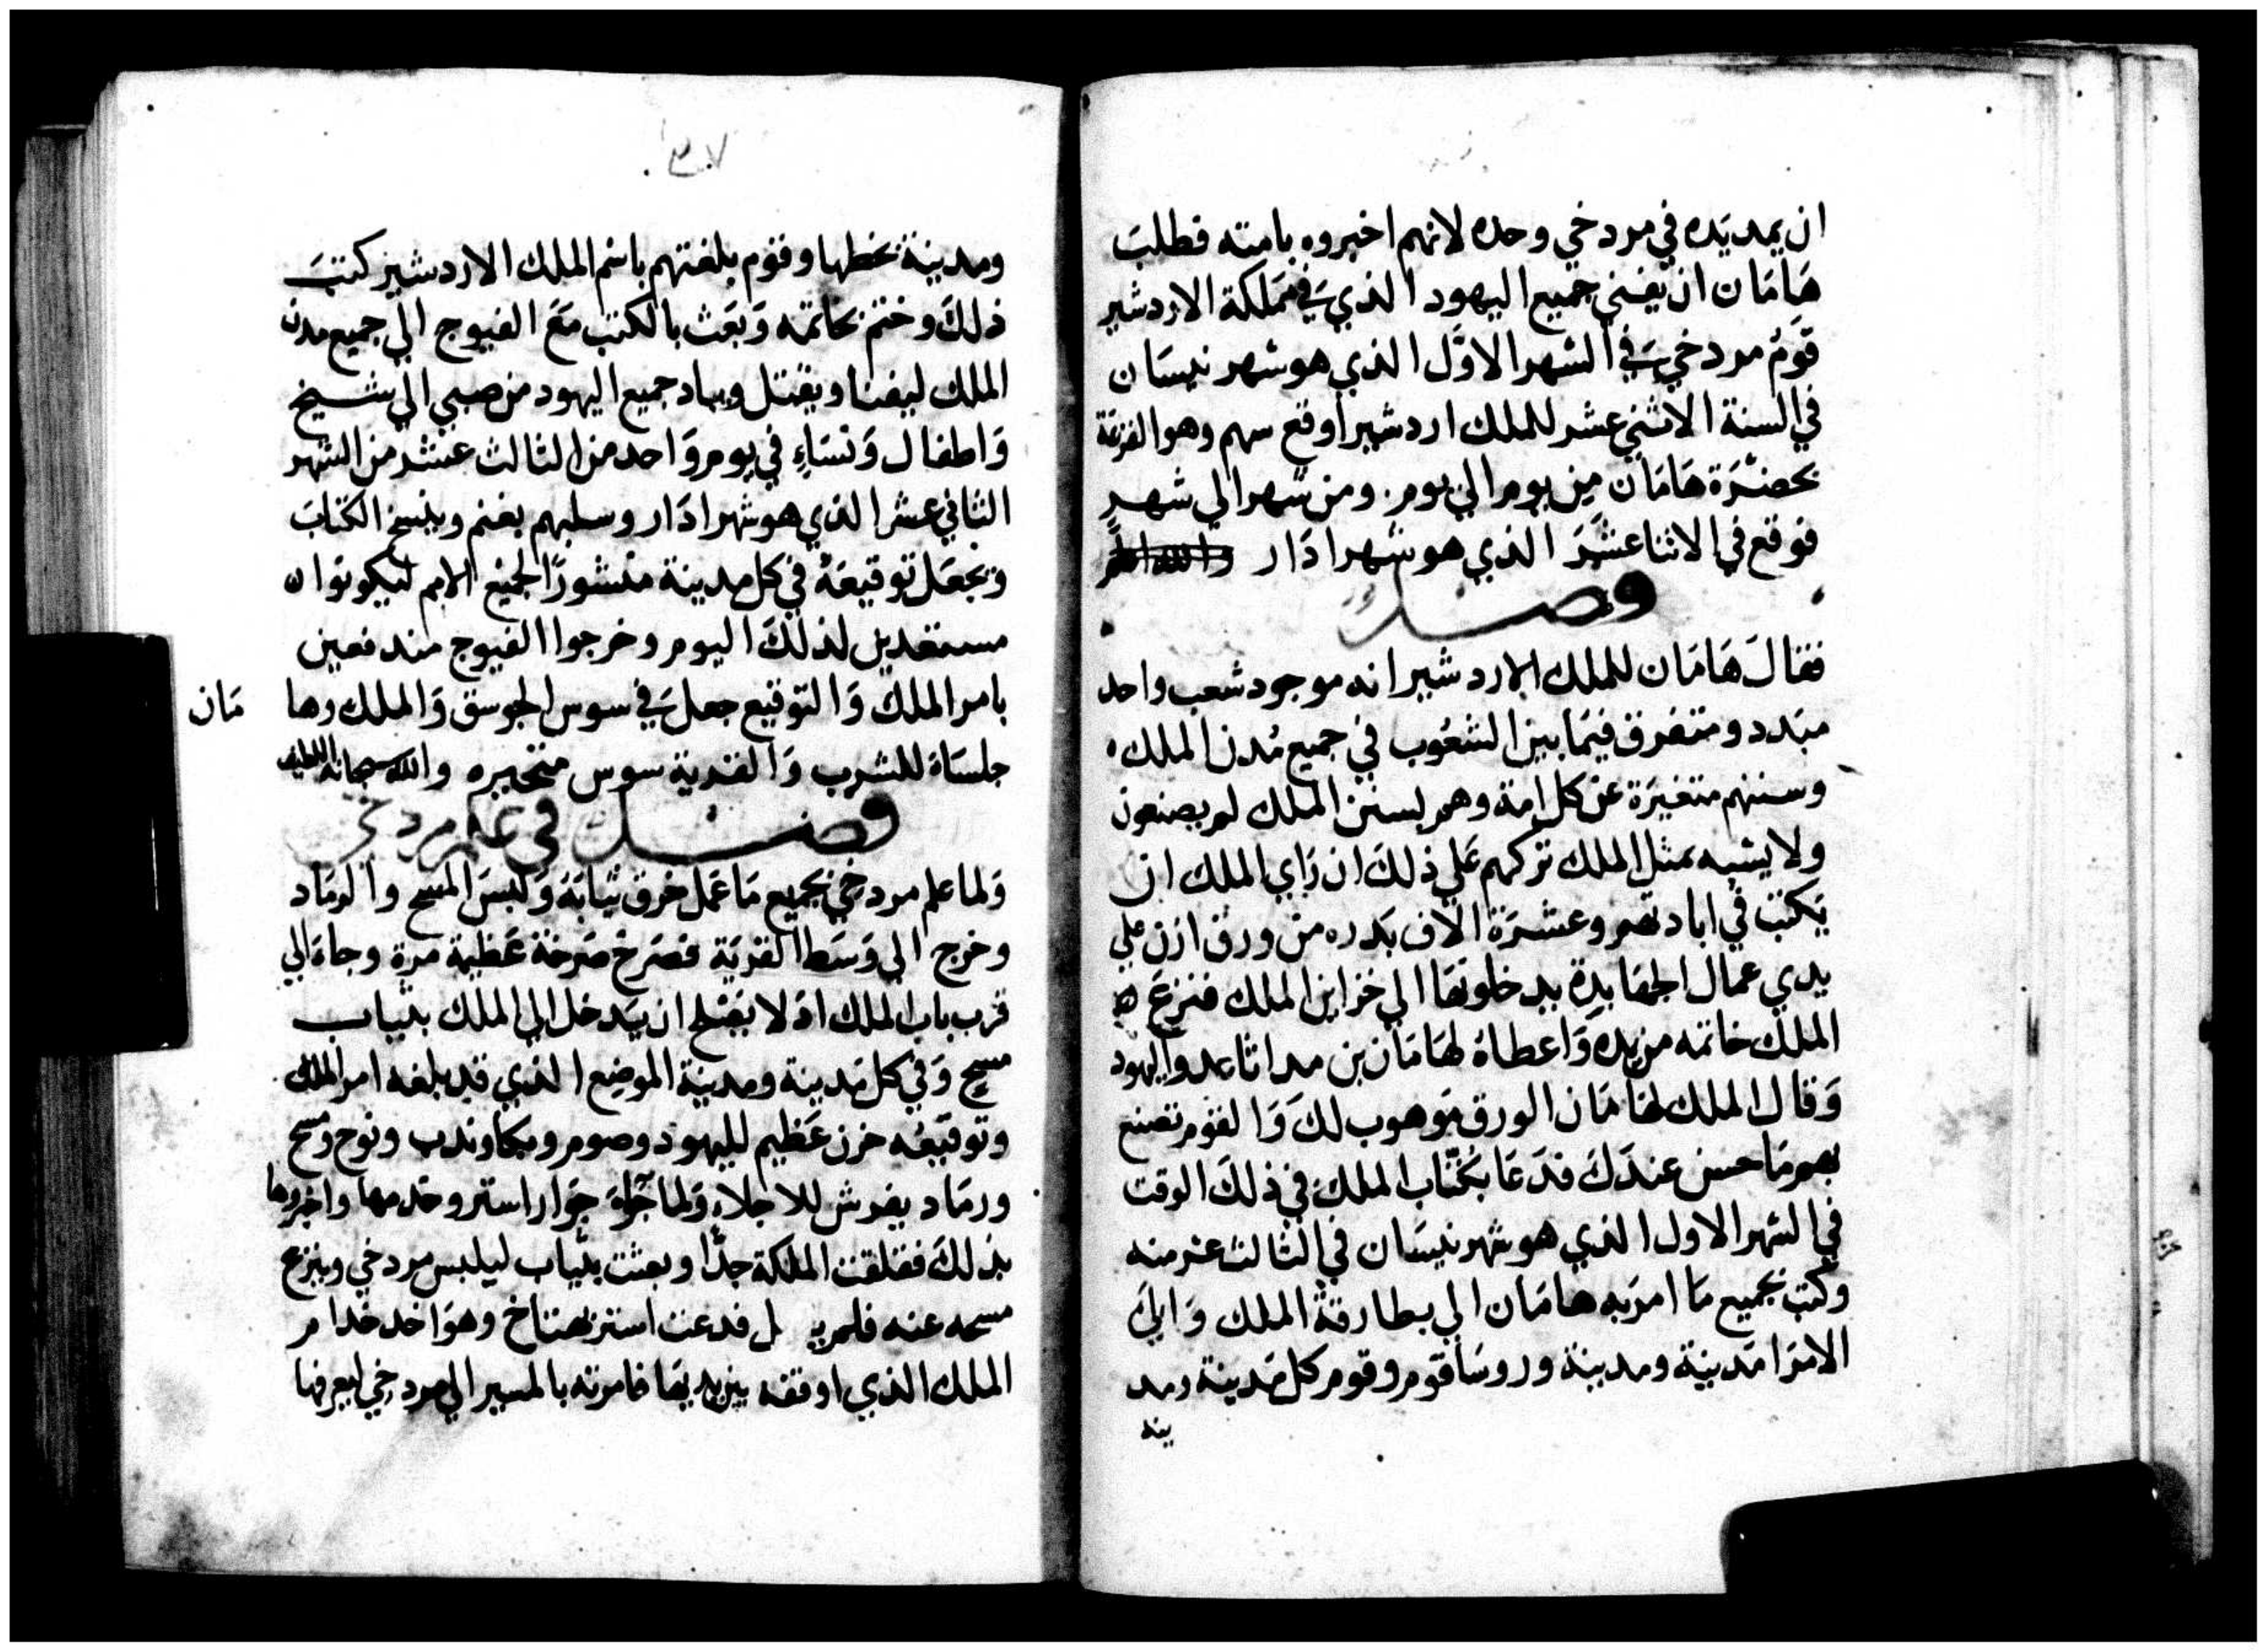 ان يمد يَده في مردخي وحده لانهم اخبروه بامته فطلبَ
هَامَان ان يفني جميع اليهود الذي في مَملكة الاردشير
قَومُ مردخي في الشهر الاوَّل الذي هو شهر نيسَان
في السنة الاثني عشر للملك اردشير اوقع سهم وهو القرعَة
بحضرَة هَامَان مِن يوم الي يوم. ومن شهر الي شهرٍ
فوقع في الاثنا عشَرَ الذي هو شهر ادَار
فصل
فقالَ هَامَان للملك الاردشير انه موجود شعب واحد
مبَدد ومتفرق فيمَا بين الشعُوب في جميع مُدن الملك
وسننهم متغيرَة عن كل امة وهم لسنن الملك لم يصنعون
ولا يشبه مثل الملك تركهم عَلي ذلكَ ان رَاي الملك ان
يَكتبَ في ابادتهم وعشرَة الاف بَدره من ورق ازن علي
يدي عمال الجهَابدة يدخلونهَا الي خزاين الملك فنزعَ
الملك خاتمه من يده وَاعطاهُ لهَامَان بن مداثا عدو اليهود
وَقال الملك لهَامَان الورق مَوهوب لكَ وَالقوم تصنع
بهم مَا حسن عندَكَ فدَعَا بكتّاب الملك في ذلكَ الوقت
في الشهر الاول الذي هو شهر نيسَان في الثالث عشر منه
وكتب بجميع مَا امرَ به هامَان الي بطارقة الملك وَالي
الامرَا مَدينَة ومدينة وروسَا قوم وقوم كل مَدينة ومد
ينه
٣٠٧
ومدينة بخطها وقوم بلغتهم باسم الملك الاردشير كتبَ
ذلكَ وختم بخاتمه وَبَعَث بالكتب مَعَ الفيوج الي جميع مدن
الملك ليفنا ويقتل ويباد جميع اليهود من صبي الي شيخ
وَاطفال وَنسَاءٍ في يوم وَاحد من الثالث عشر من الشهر
الثاني عشر الذي هو شهر ادَار وسلبهم يغنم وينسخ الكتابَ
ويجعَل توقيعَهُ في كل مدينة منشورًا لجميع الامم ليكونوا
مستعدين لذلكَ اليوم وخرجوا الفيوج مندفعين
بامر الملك وَالتوقيع جعل في سوس الجوسق وَالملك وها مَان
جلسَاهُ للشرب وَالقرية سوس متحيره والله سبحانه
فصل في علم مردخي
وَلما علم مردخي بجميع مَا عَمل خرق ثيَابَهُ وَلبسَ المسح والرمَاد
وخرج الي وَسَط القريَة فصَرخ صَرخة عَظيمة مرة وجاهَ الي
قرب باب الملك اذ لا يصَلح ان يَدخل الي الملك بثياب
مسح وَفي كل مَدينة ومدينة الموضع الذي قد بلغه امر الملك
وتوقيعُه حزن عَظيم لليهود وصوم وبكا وندب ونوح ومسح
ورمَاد يفرش للاجلاء وَلما جَاهَ جَوار استر وخدمها واخبروها
بذلكَ فقلقت الملكة جدًّا وبعثت بثياب ليلبس مردخي وينزع
مسحه عنه فلم ل فدعت استر بهتاخ وهوَ احد خدام
الملك الذي اوقفه بين يديهَا فامرته بالمسير الي مردخي ليعرفها